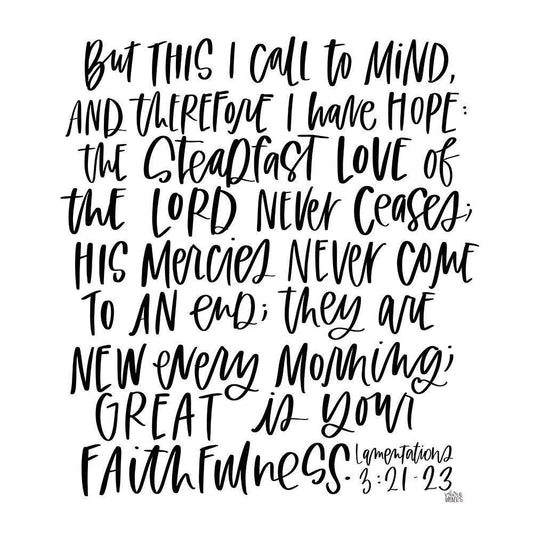 But THIS I call to MIND,
AND therefore I have HOPE:
the Steadfast LOVE of
the LORD Never Ceases;
HIS Mercies NEVER COME
TO AN end; they are
NEW every Morning;
GREAT is your
FAithfulness. Lamentations
3:21-23